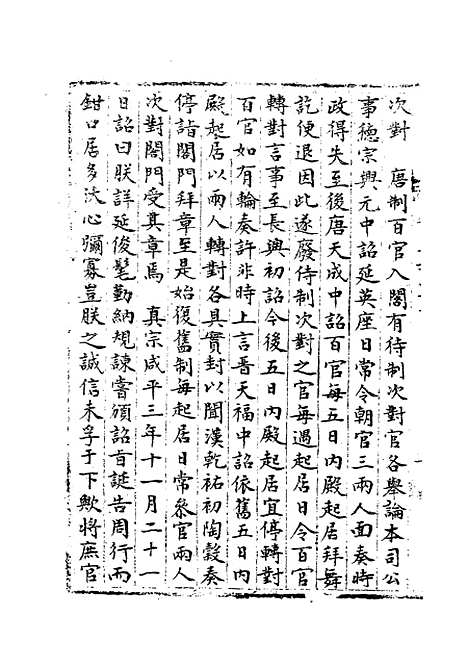 次對　唐制百官入閤有待制次對官各舉論本司公
事德宗興元中詔延英座日常令朝官三兩人面奏時
政得失至後唐天成中詔百官每五日內殿起居拜舞
訖便退因此遂廢待制次對之官每遇起居日令百官
轉對言事至長興初詔令後五日內殿起居宜停轉對
百官如有輪奏許非時上言晋天福中詔依舊五日內
殿起居以兩人轉對各具實封以聞漢乾祐初陶穀奏
停詣閤門拜章至是始復舊制每起居日常叅官兩人
次對閤門受其章焉　真宗咸平三年十一月二十一
日詔曰朕詳延俊髦勤納規諫嘗頒詔旨誕告周行而
鉗口居多沃心彌寡豈朕之誠信未孚于下歟將庶官